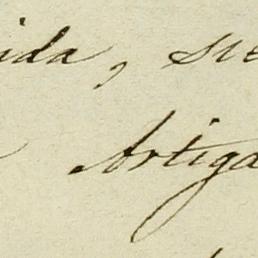 ida, sie
Artiga